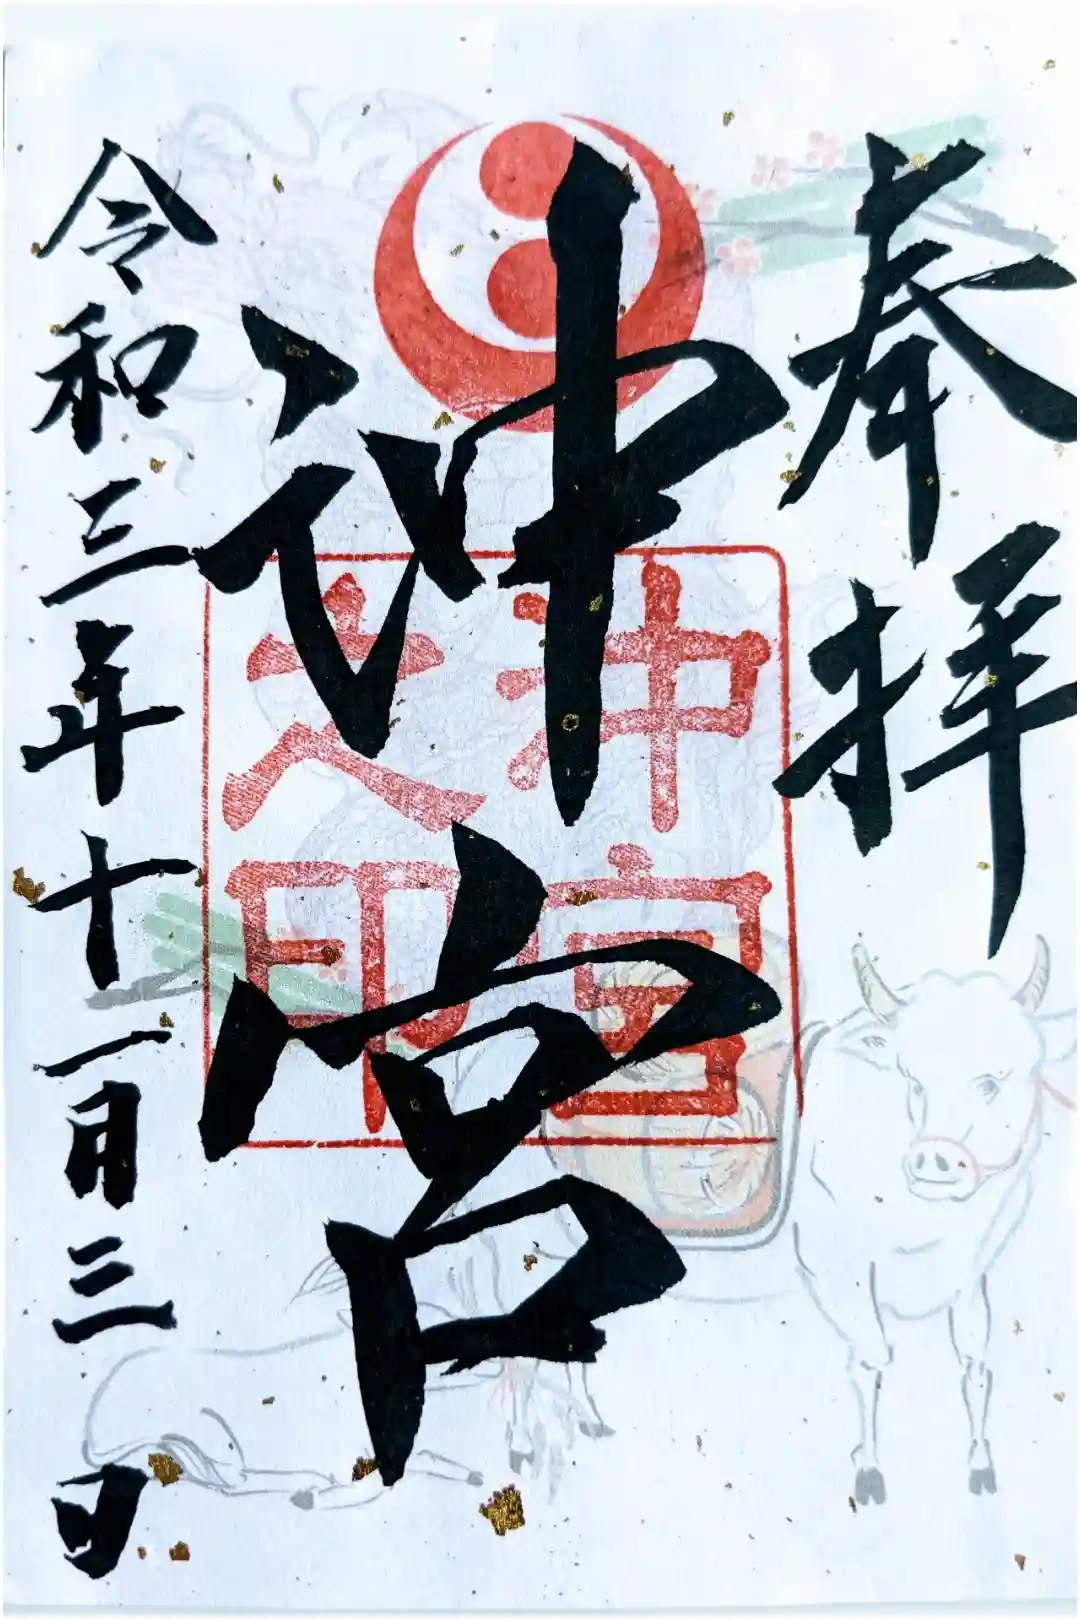 奉拝
沖宮
沖宮
之印
令和三年十一月三日